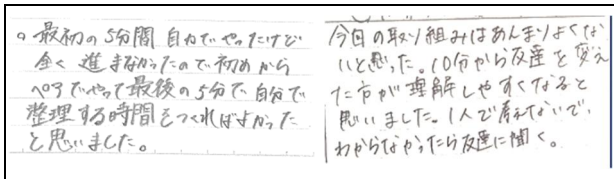 。最初の5分間 自力でやったけど
全く進まなかったので初めから
ペアでやって最後の5分で自分で
整理する時間をつくればよかった
と思いました。
今日の取り組みはあんまりよくな
いと思った。10分から友達を変え
た方が理解しやすくなると
思いました。1人で考えないで、
わからなかったら友達に聞く。